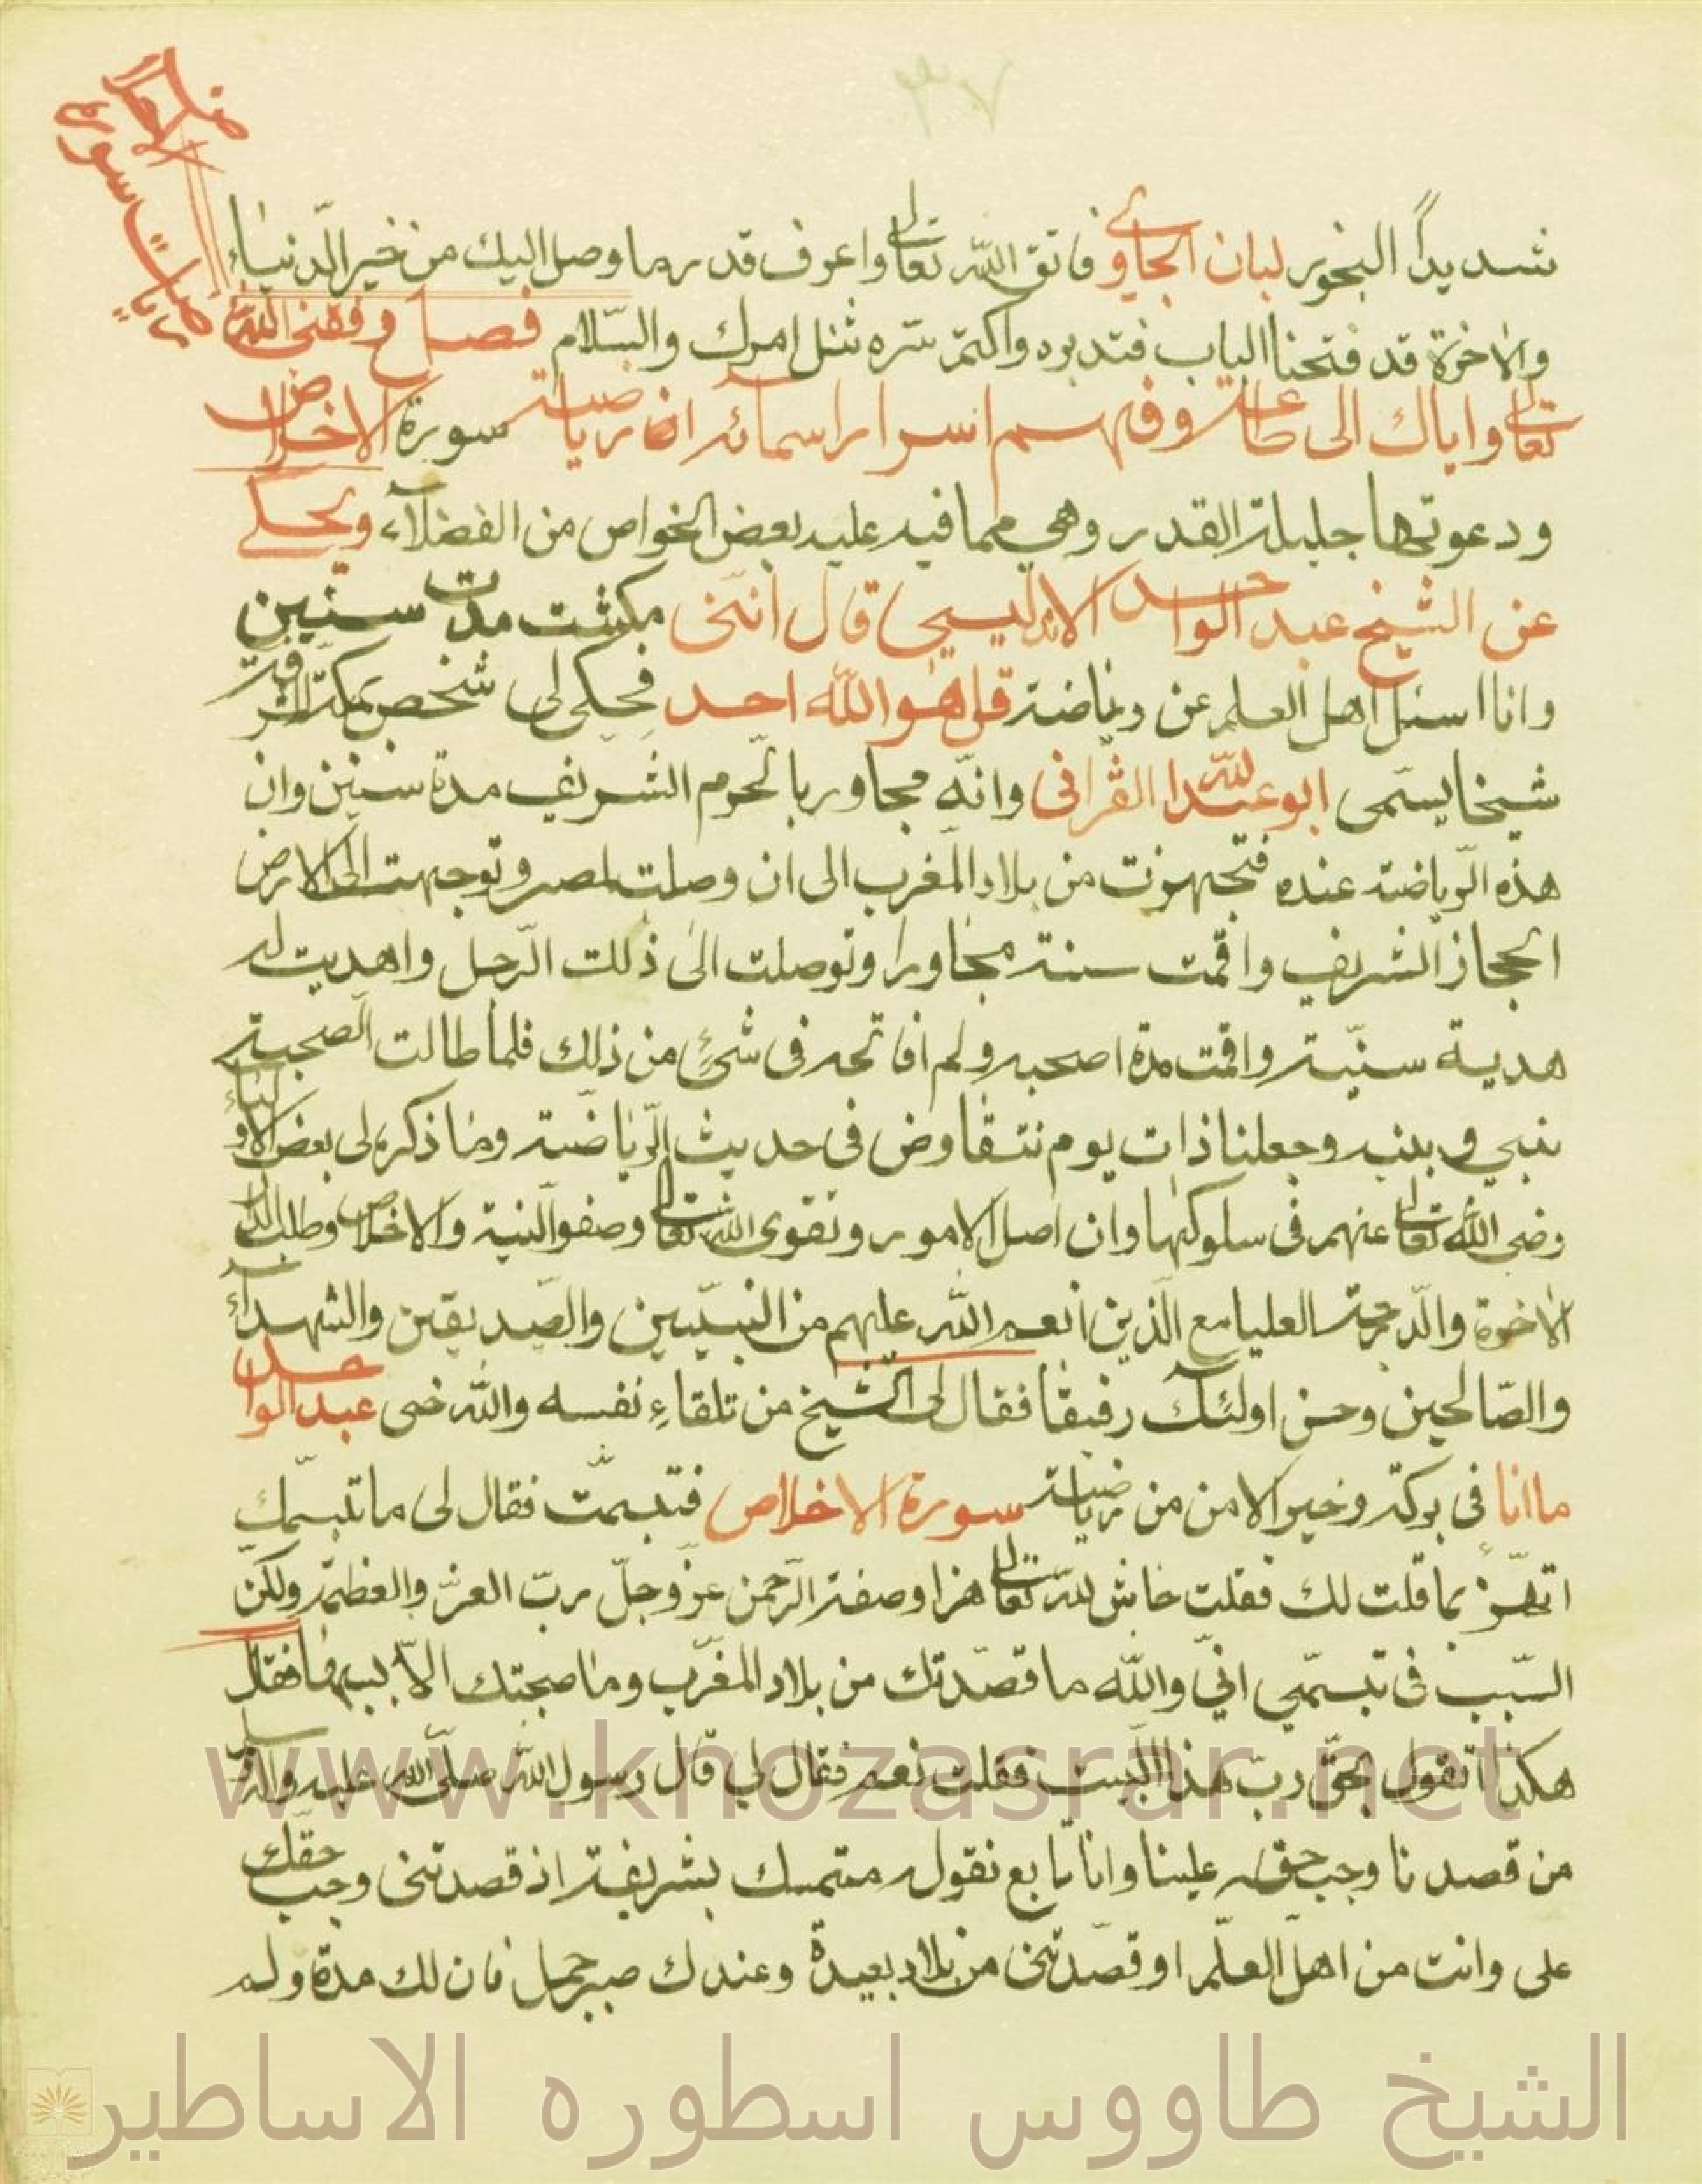 رياضات سورة الاخلاص
شديداً البخور لبان الجاوي فاتق الله تعالى واعرف قدر ما وصل اليك من خير الدنياء
والاخرة قد فتحنا الباب فتدبره واكتم سره تنل امرك والسلام فصل وفقني الله
تعالى واياك الى طاعته وفهم اسرار اسمائه ان رياضة سورة الاخلاص
ودعوتها جليلة القدر وهي مما فيه عليه بعض الخواص من الفضلآء ويحكى
عن الشيخ عبد الواحد الاندليسي قال انني مكثت مدت سنين
وانا اسئل اهل العلم عن رياضة قل هو الله احد فحكى لى شخص بمكة الشرفة
شيخا يسمى ابو عبد الله القرافى وانه مجاور بالحرم الشريف مدة سنين وان
هذه الرياضة عنده فتجهزت من بلاد المغرب الى ان وصلت لمصر وتوجهت الى الارض
الحجاز الشريف واقمت سنة مجاورا وتوصلت الى ذلك الرجل واهديت له
هدية سنية واقمت مدة اصحبه ولم افاتحه فى شئ من ذلك فلما طالت الصحبة
بيني وبينه وجعلنا ذات يوم نتفاوض فى حديث الرياضة وما ذكره لى بعض الاولياء
رضى الله تعالى عنهم فى سلوكها وان اصل الامور وتقوى الله تعالى وصفو النية والاخلاص وطلب الدار
الاخرة والدرجة العليا مع الذين انعم الله عليهم من النبيين والصديقين والشهدآء
والصالحين وحسن اولئك رفيقا فقال لى الشيخ من تلقاء نفسه والله خى عبد الواحد
ما انا فى بركة وخير الا من من رياضة سورة الاخلاص فتبسمت فقال لى ما تبسمك
اتهزئ بما قلت لك فقلت حاش لله تعالى هزا وصفة الرحمن عز وجل رب العز والعظمة ولكن
السبب فى تبسمي اني والله ما قصدتك من بلاد المغرب وما صحبتك الا بسببها فقال
هكذا تقول بحق رب هذا البيت فقلت نعم فقال لي قال رسول الله صلى الله عليه واله وسلم
من قصدنا وجب حقه علينا وانا تابع نقوله متمسك بشريفته اذ قصدتنى وجب حقك
على وانت من اهل العلم او قصدتنى من بلاد بعيدة وعندك صبر جميل فان لك مدة ولم
www.khozasrar.net
الشيخ طاووس اسطوره الاساطير